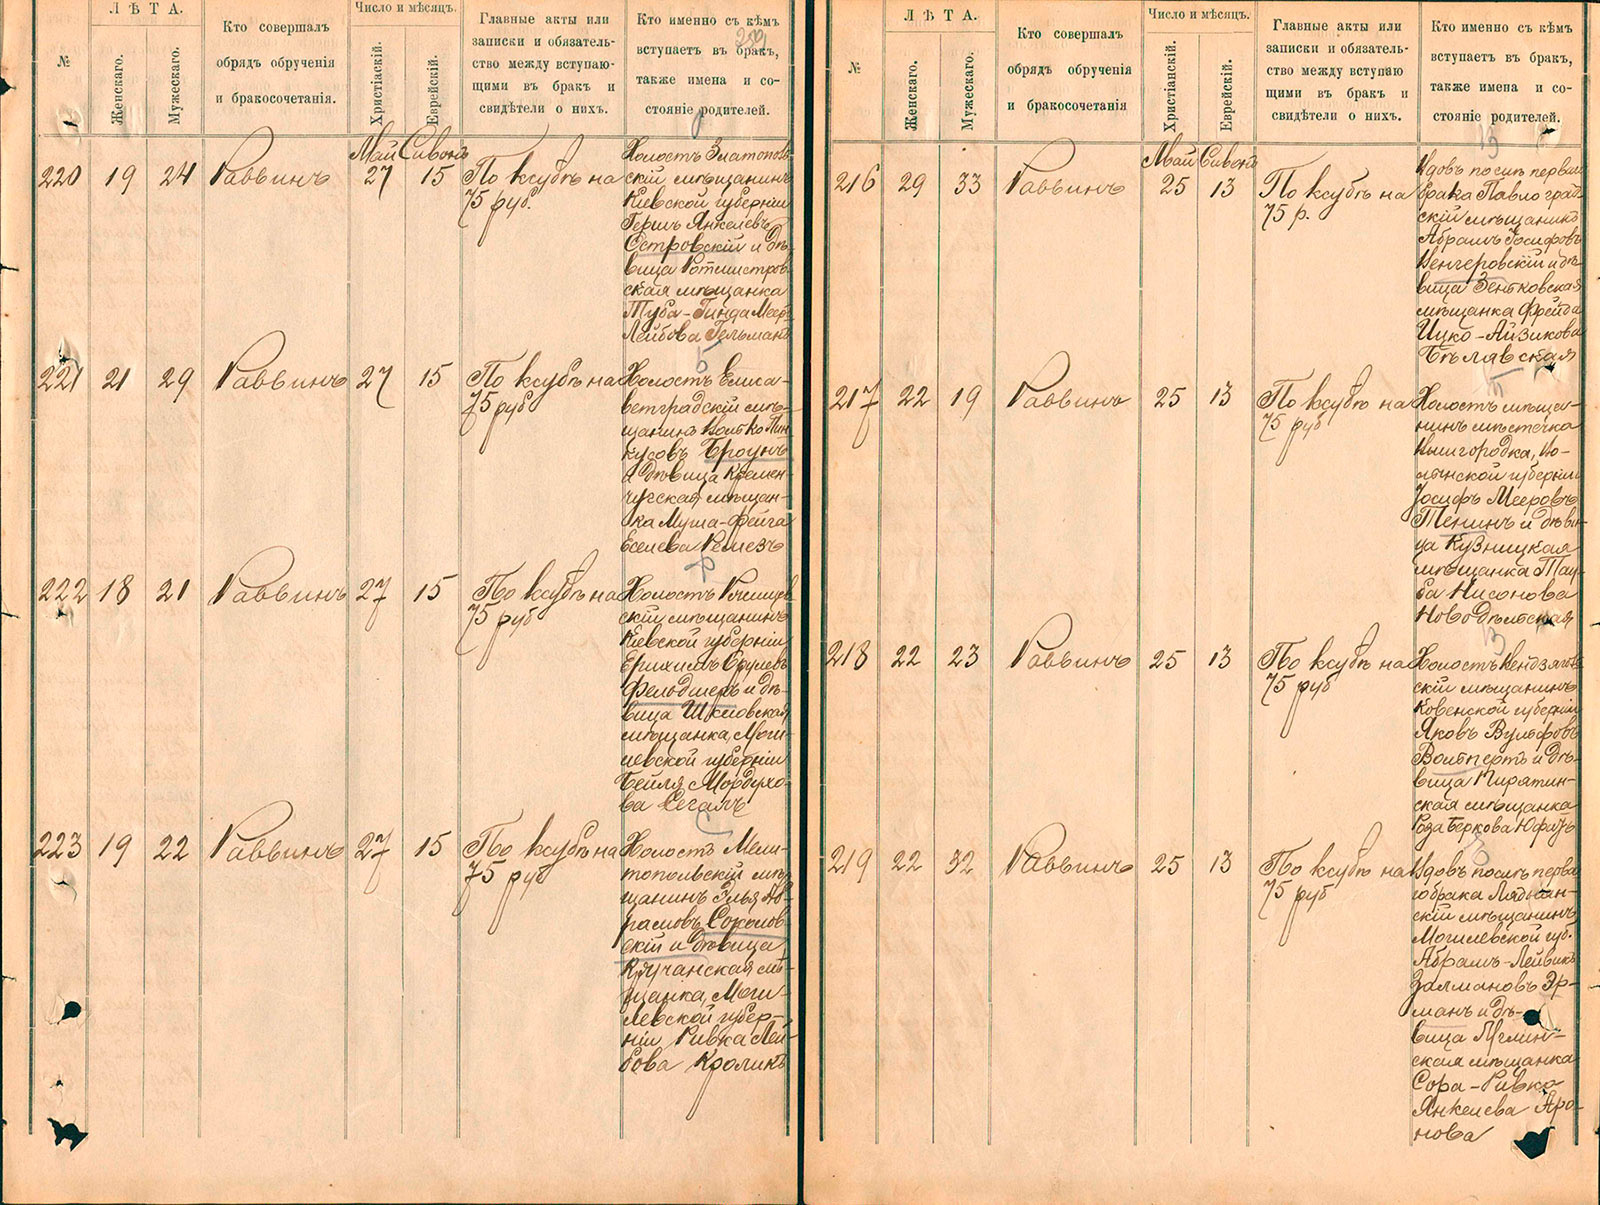 №
ЛѢТА.
Женскаго.
Мужескаго.
Кто совершалъ
обрядъ обрученія
и бракосочетанія.
Число и мѣсяцъ.
Христіаскій.
Еврейскій.
Главные акты или
записки и обязатель-
ство между вступаю-
щими въ бракъ и
свидѣтели о нихъ.
Кто именно съ кѣмъ
вступаетъ въ бракъ,
также имена и со-
стояніе родителей.
Май Сивонъ
220 19 24 Раввинъ 27 15
По ксубѣ на
75 руб.
Холостъ Златополь
скій мѣщанинъ
Кіевской губерніи
Гершъ Янкелевъ
Островскій и дѣ-
вица Ротмистров
ская мѣщанка
Туба-Гинда Меер-
Лейбова Гельманъ
221 21 29 Раввинъ 27 15
По ксубѣ на
75 руб
Холостъ Елиса-
ветградскій мѣ-
щанинъ Волько Пин
кусовъ Броунъ
и дѣвица Кремен-
чугская мѣщан-
ка Муша-Фейга
Еселева Ремезъ
222 18 21 Раввинъ 27 15
По ксубѣ на
75 руб
Холостъ
скій мѣщанинъ
Кіевской губерніи
Срулевъ
Фельдшеръ и дѣ-
вица Шкловская
мѣщанка, Моги-
левской губерніи
Бейля Мордухо-
ва Сегалъ
223 19 22 Раввинъ 27 15
По ксубѣ на
75 руб
Холостъ Мели-
топольскій мѣ-
щанинъ Элья Аб-
рамовъ Соколов
скій и дѣвица
Кручанская мѣ-
щанка, Моги-
левской губер-
ніи Ривка Лей-
бова Кроликъ
№
ЛѢТА.
Женскаго.
Мужескаго.
Кто совершалъ
обрядъ обрученія
и бракосочетанія
Число и мѣсяцъ.
Христіанскій.
Еврейскій.
Главные акты или
записки и обязатель-
ство между вступаю
щими въ бракъ и
свидѣтели о нихъ.
Кто именно съ кѣмъ
вступаетъ въ бракъ,
также имена и со-
стояніе родителей.
Май Сивонъ
216 29 33 Раввинъ 25 13
По ксубѣ на
75 р.
Вдовъ послѣ перваго
брака Павлоград-
скій мѣщанинъ
Абрамъ Іосифовъ
Венгеровскій и дѣ-
вица Зеньковская
мѣщанка Фрейда
Ицко-Айзикова
Бѣлявская
217 22 19 Раввинъ 25 13
По ксубѣ на
75 руб
Холостъ мѣща-
нинъ мѣстечка
Вышгородка, Во-
лынской губерніи
Іосифъ Мееровъ
Тенинъ и дѣви-
ца Кузницкая
мѣщанка Тау-
ба Нисонова
Новодѣльская
218 22 23 Раввинъ 25 13
По ксубѣ на
75 руб
Холостъ Вендзяголь
скій мѣщанинъ
Ковенской губерніи
Яковъ Вульфовъ
Вольпертъ и дѣ-
вица Пирятин-
ская мѣщанка
Роза Беркова Юфитъ
219 22 32 Раввинъ 25 13
По ксубѣ на
75 руб
Вдовъ послѣ перва
го брака Ляднян-
скій мѣщанинъ,
Могилевской губ.
Абрамъ-Лейвикъ
Залмановъ Эр-
манъ и дѣ-
вица Мглин-
ская мѣщанка
Сора-Ривка
Янкелева Аро-
нова